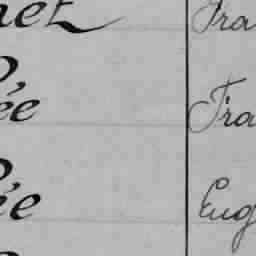 net Fra
ée Fra
ée Eug